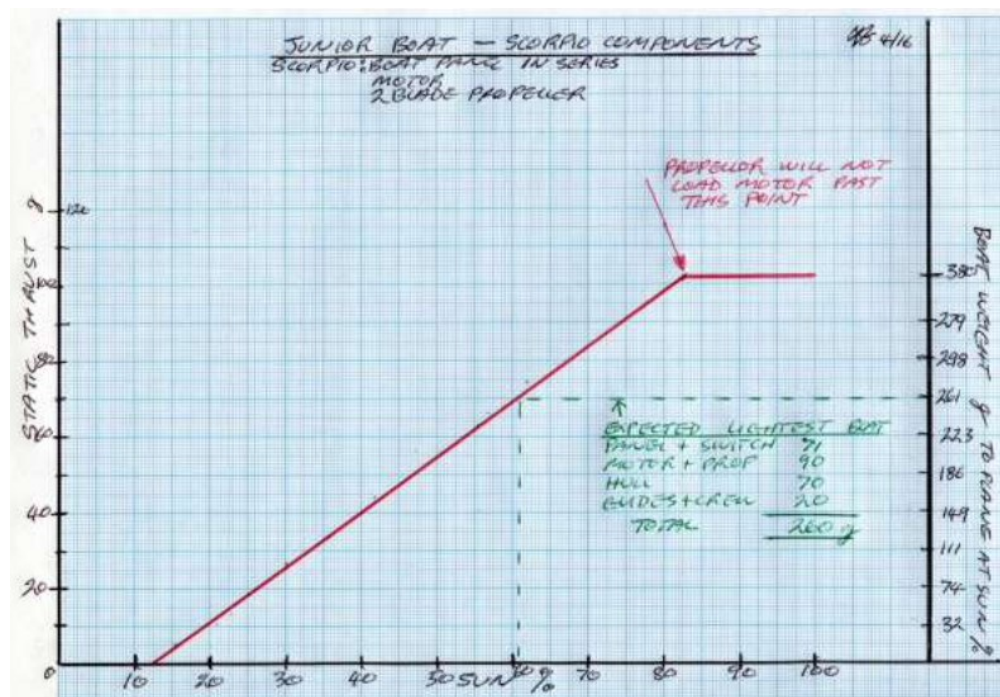 JUNIOR BOAT — SCORPIO COMPONENTS
4/16
SCORPIO: BOAT PANEL IN SERIES
MOTOR
2 BLADE PROPELLER
PROPELLOR WILL NOT
LOAD MOTOR PAST
THIS POINT
STATIC THRUST g
120
100
80
60
40
20
0
10 20 30 40 50 SUN 60 % 70 80 90 100
BOAT WEIGHT g TO PLANE AT SUN %
380
279
298
261
223
186
149
111
74
32
EXPECTED LIGHTEST BOAT
PANEL + SWITCH 71
MOTOR + PROP 90
HULL 70
GUIDES + CREW 20
TOTAL 260 g